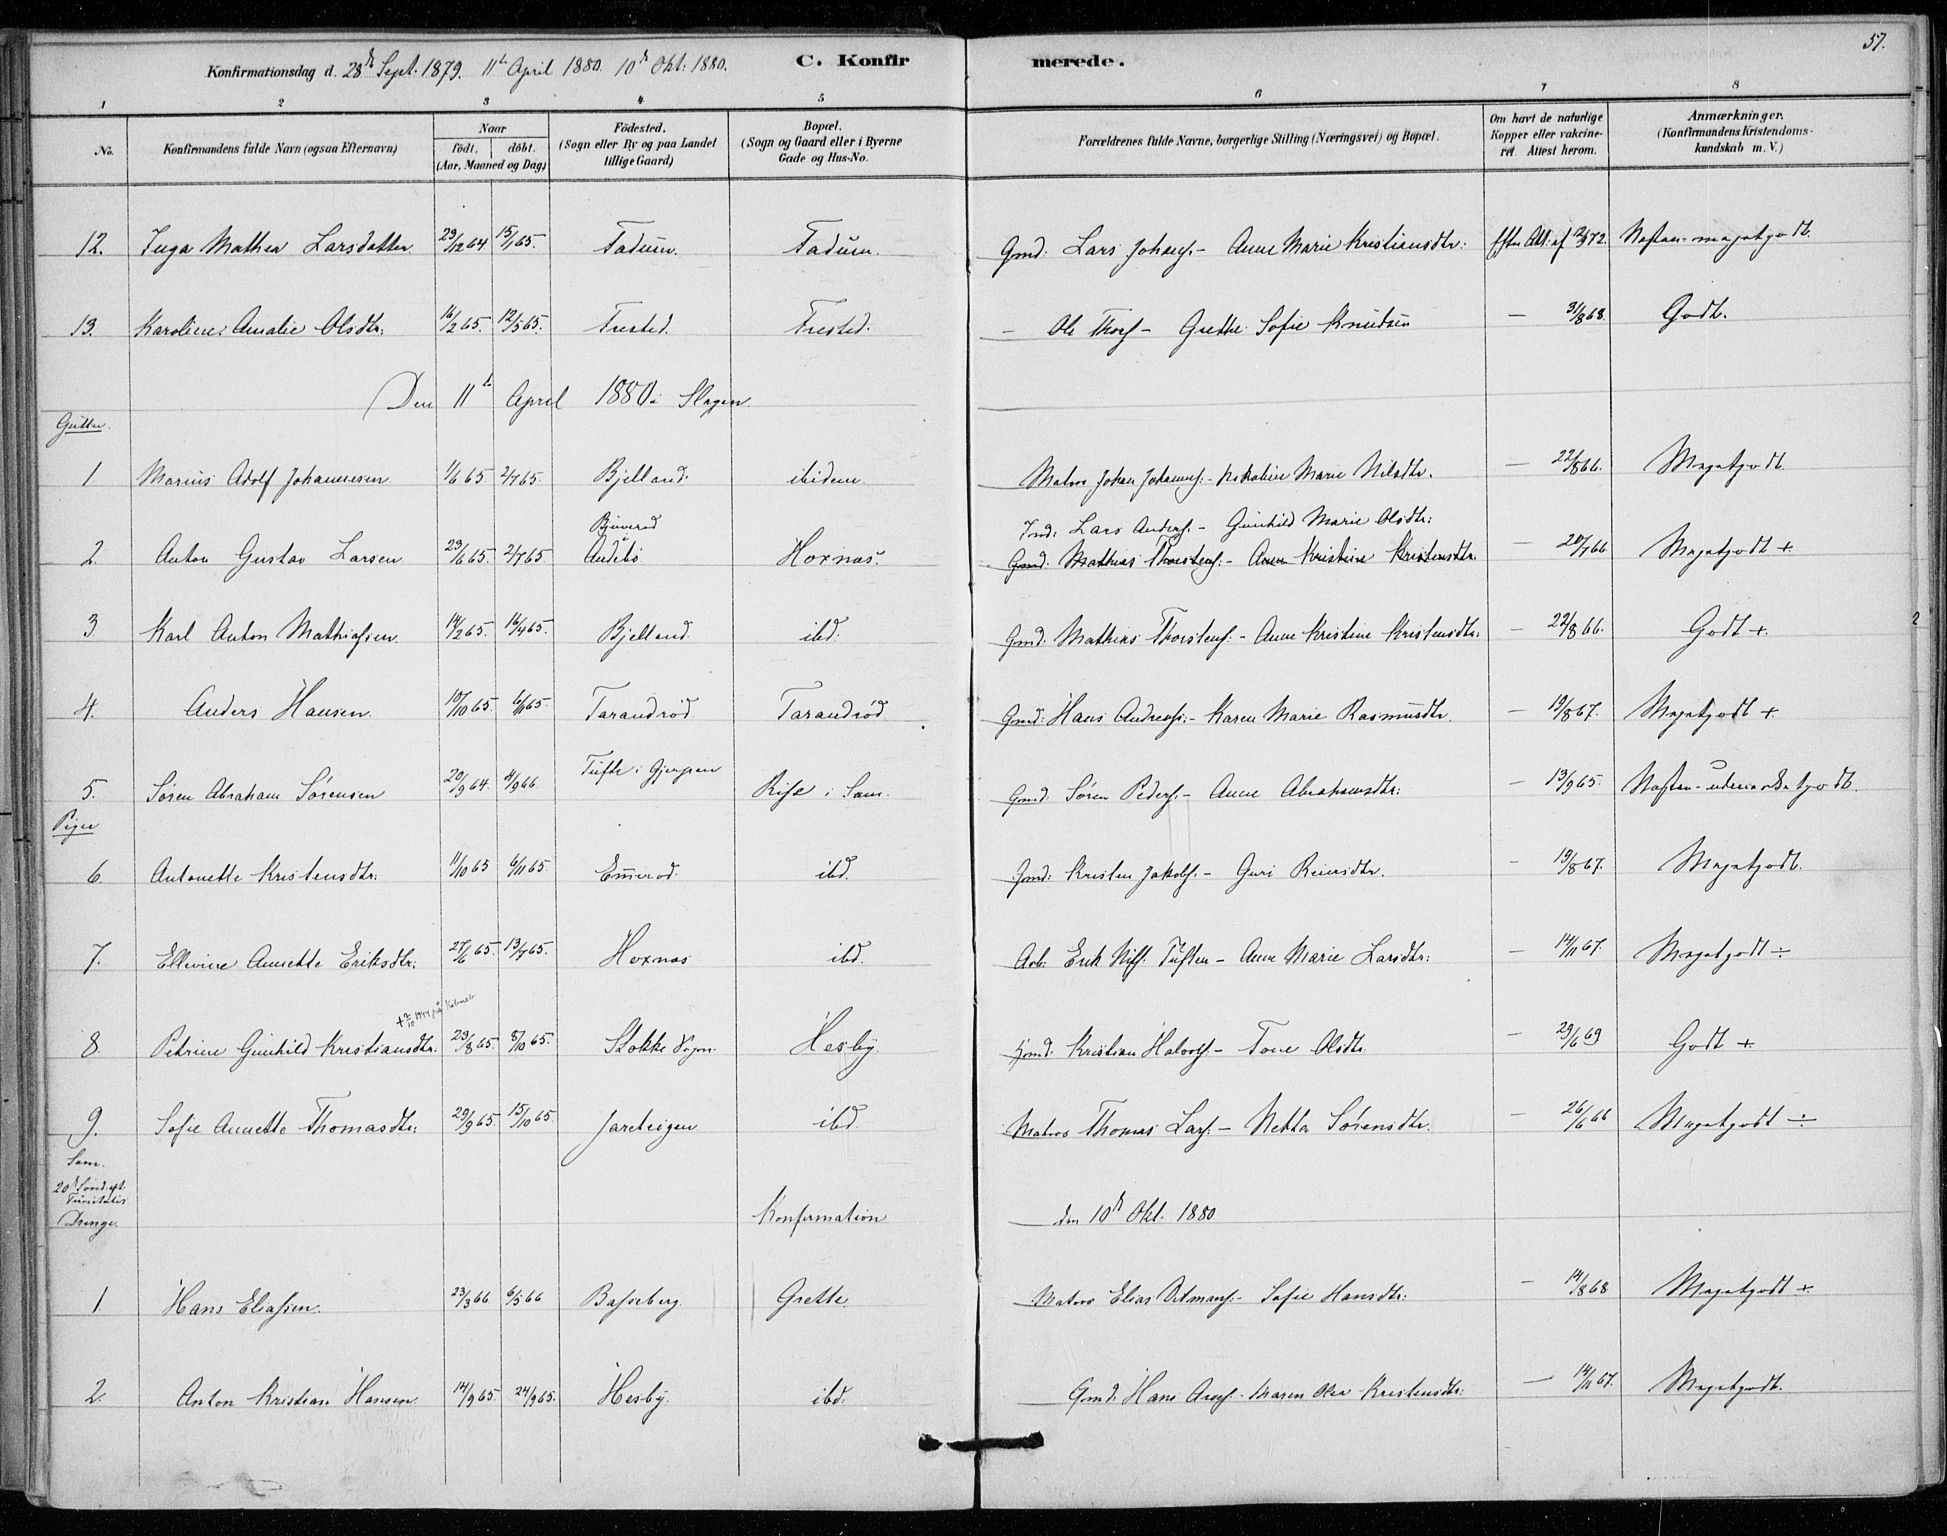 57.
Konfirmationsdag d. 28d Sept. 1879. 11t April 1880. 10d Okt. 1880. C. Konfir merede.
1 2 3 4 5 6 7 8
No. Konfirmandens fulde Navn (ogsaa Efternavn) Naar født. døbt. (Aar, Maaned og Dag) Fødested. (Sogn eller By og paa Landet tillige Gaard) Bopæl. (Sogn og Gaard eller i Byerne Gade og Hus-No. Forældrenes fulde Navne, borgerlige Stilling (Næringsvei) og Bopæl. Om havt de naturlige Kopper eller vakcineret. Attest herom. Anmærkninger. (Konfirmandens Kristendomskundskab m. V.)
12. Inga Mathea Larsdatter 29/12 64 15/1 65. Fadum. Fadum. Gmd: Lars Johans. - Anne Marie Kristiansdtr: Efter Att: af 72. Næsten megetgodt.
13. Karoline Amalie Olsdtr: 16/2 65. 12/5 65. Trested. Trested. — Ole Thors. - Grethe Sofie Knudsen — 31/8 68. Godt.
Den 11te April 1880 i Slagen.
Gutter.
1 Marius Adolf Johannesen 1/6 65 2/7 65. Bjelland. ibidem. Matros Johan Johannes. - Nikoline Marie Nilsdtr. — 22/8 66. Megetgodt
2. Anton Gustav Larsen 29/6 65. 2/7 65. Bjuerød i Andebø Hoxnæs. Ind: Lars Anders. - Gunhild Marie Olsdtr:
Gmd: Mathias Thorstens. - Anne Kristine Kristensdtr. — 20/7 66 Megetgodt +
3. Karl Anton Mathiasen. 14/2 65. 16/4 65. Bjelland. ibd. Gmd: Mathias Thorstens. - Anne Kristine Kristensdtr: — 22/8 66. Godt +
4. Anders Hansen. 10/10 65. 6/11 65. Tarandrød Tarandrød. Gmd: Hans Andreas. - Karen Marie Rasmusdtr. — 19/8 67. Megetgodt +
5. Søren Abraham Sørensen 20/9 64. 4/9 66 Tufte i Gjerpen Rise i Sem. Gmd. Søren Peders. - Anne Abrahamsdtr: — 13/9 65. Næsten - udmærketgodt.
Piger
6. Antonette Kristensdtr: 11/10 65 6/11 65. Emerød. ibd. Gmd: Kristen Jakobs. - Guri Reiersdtr. — 19/8 67. Megetgodt.
7. Ellevine Annette Eriksdtr: 27/6 65. 13/7 65. Hoxnæs ibd. Arb: Erik Nils. Tuften - Anne Marie Larsdtr: — 14/11 67. Megetgodt ÷
+ 2/10 1944 på
8. Petrine Gunhild Kristiansdtr. 29/8 65. 8/10 65. Stokke Sogn. Hesby. Gmd: Kristian Halvors. - Tone Olsdtr. — 29/6 69 Godt +
9. Sofie Annette Thomasdtr: 29/9 65. 15/10 65. Jareteigen ibd. Matros Thomas Lars. - Netta Sørensdtr. — 26/6 66 Megetgodt ÷
Sem.
20d Sønd. eft. Trinitatis
Drenge. Konfirmation den 10d Okt. 1880
1. Hans Eliassen. 23/3 66 6/5 66 Basseberg. Grette. Matros Elias Ditmans. - Sofie Hansdtr: — 14/8 68 Megetgodt +
2. Anton Kristian Hansen. 14/9 65. 24/9 65. Hesby. ibd. Gmd: Hans - Maren Kristensdtr: — 14/11 67. Megetgodt.